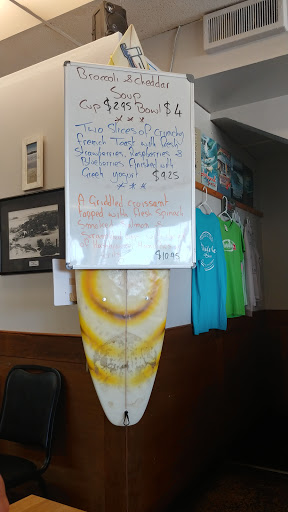 Broccoli & cheddar
Soup
Cup $2.95 Bowl $4
Two slices of crunchy
french toast with fresh
Strawberries, Raspberries &
Blueberries finished with
Greek yogurt $9.25
A Griddled croissant
topped with fresh Spinach
Smoked Salmon &
$10.95